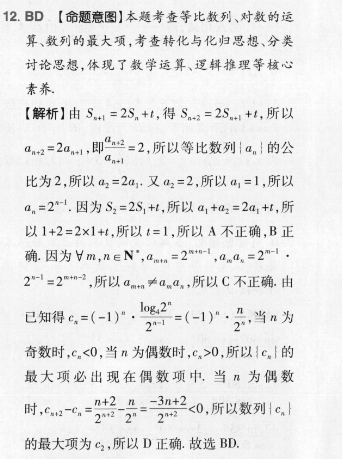 12. BD 【命题意图】本题考查等比数列、对数的运
算、数列的最大项,考查转化与化归思想、分类
讨论思想,体现了数学运算、逻辑推理等核心
素养.
【解析】由 Sₙ₊₁ = 2Sₙ+t,得 Sₙ₊₂ = 2Sₙ₊₁+t,所以
aₙ₊₂=2aₙ₊₁,即 aₙ₊₂/aₙ₊₁=2,所以等比数列{aₙ}的公
比为 2,所以 a₂=2a₁. 又 a₂=2,所以 a₁=1,所以
aₙ=2ⁿ⁻¹. 因为 S₂=2S₁+t,所以 a₁+a₂=2a₁+t,所
以 1+2=2×1+t,所以 t=1,所以 A 不正确,B 正
确. 因为 ∀m,n∈N*,aₘ₊ₙ=2ᵐ⁺ⁿ⁻¹,aₘaₙ=2ᵐ⁻¹·
2ⁿ⁻¹=2ᵐ⁺ⁿ⁻²,所以 aₘ₊ₙ≠aₘaₙ,所以 C 不正确. 由
已知得 cₙ=(-1)ⁿ·log₄2ⁿ/2ⁿ⁻¹=(-1)ⁿ·n/2ⁿ,当 n 为
奇数时,cₙ<0,当 n 为偶数时,cₙ>0,所以{cₙ}的
最大项必出现在偶数项中. 当 n 为偶数
时,cₙ₊₂-cₙ=(n+2)/2ⁿ⁺²-n/2ⁿ=(-3n+2)/2ⁿ⁺²<0,所以数列{cₙ}
的最大项为 c₂,所以 D 正确. 故选 BD.